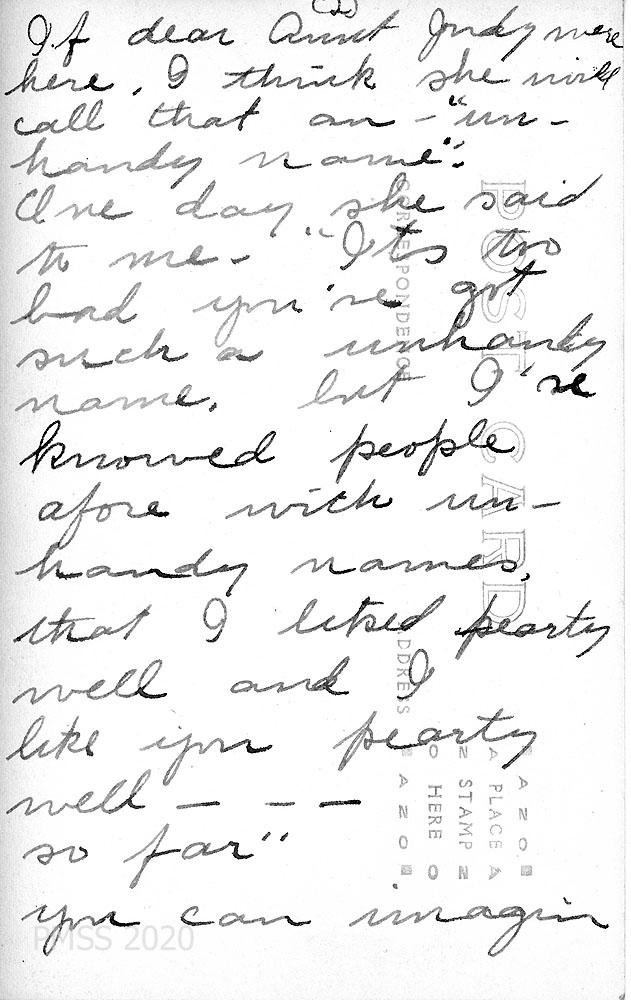 (2)
If dear Aunt Judy were
here, I think she would
call that an - "un-
handy name".
One day, she said
to me - "It's too
bad you've got
such a unhandy
name, but I've
knowed people
afore with un-
handy names,
that I liked pearty
well and I
like you pearty
well - - -
so far"
you can imagin
POST CARD
CORRESPONDENCE
ADDRESS
AZO
PLACE
STAMP
HERE
AZO
PMSS 2020